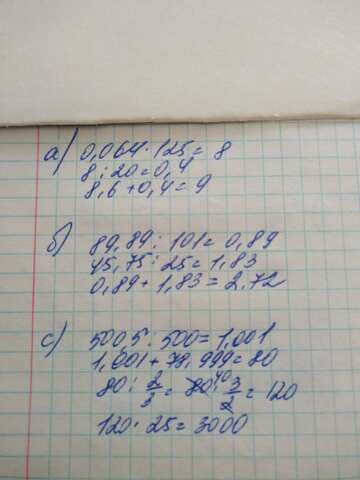 а) 0,064 · 125 = 8
8 : 20 = 0,4
8,6 + 0,4 = 9
б) 89,89 : 101 = 0,89
45,75 : 25 = 1,83
0,89 + 1,83 = 2,72
с) 5005 : 500 = 1,001
1,001 + 78,999 = 80
80 : 2/3 = 80 40 · 3/2 = 120
120 · 25 = 3000